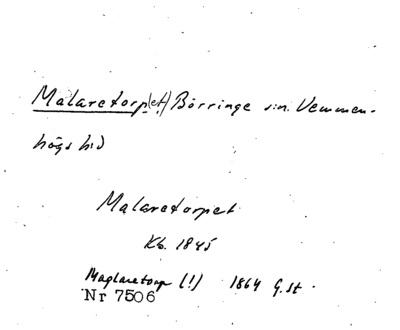 Malaretorp(et) Börringe sn. Vemmen-
högs hd
Malaretorpet
Kb. 1845
Maglaretorp (!) 1864 G.st.
Nr 7506